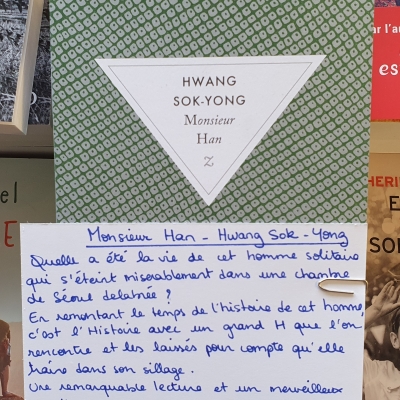 HWANG
SOK-YONG
Monsieur
Han
Z
Monsieur Han - Hwang Sok-Yong
Quelle a été la vie de cet homme solitaire
qui s'éteint misérablement dans une chambre
de Séoul delabrée ?
En remontant le temps de l'histoire de cet homme,
c'est l'Histoire avec un grand H que l'on
rencontre et les laissés pour compte qu'elle
traîne dans son sillage.
Une remarquable lecture et un merveilleux
ar l'au
es
el
E
HERI
E
SO